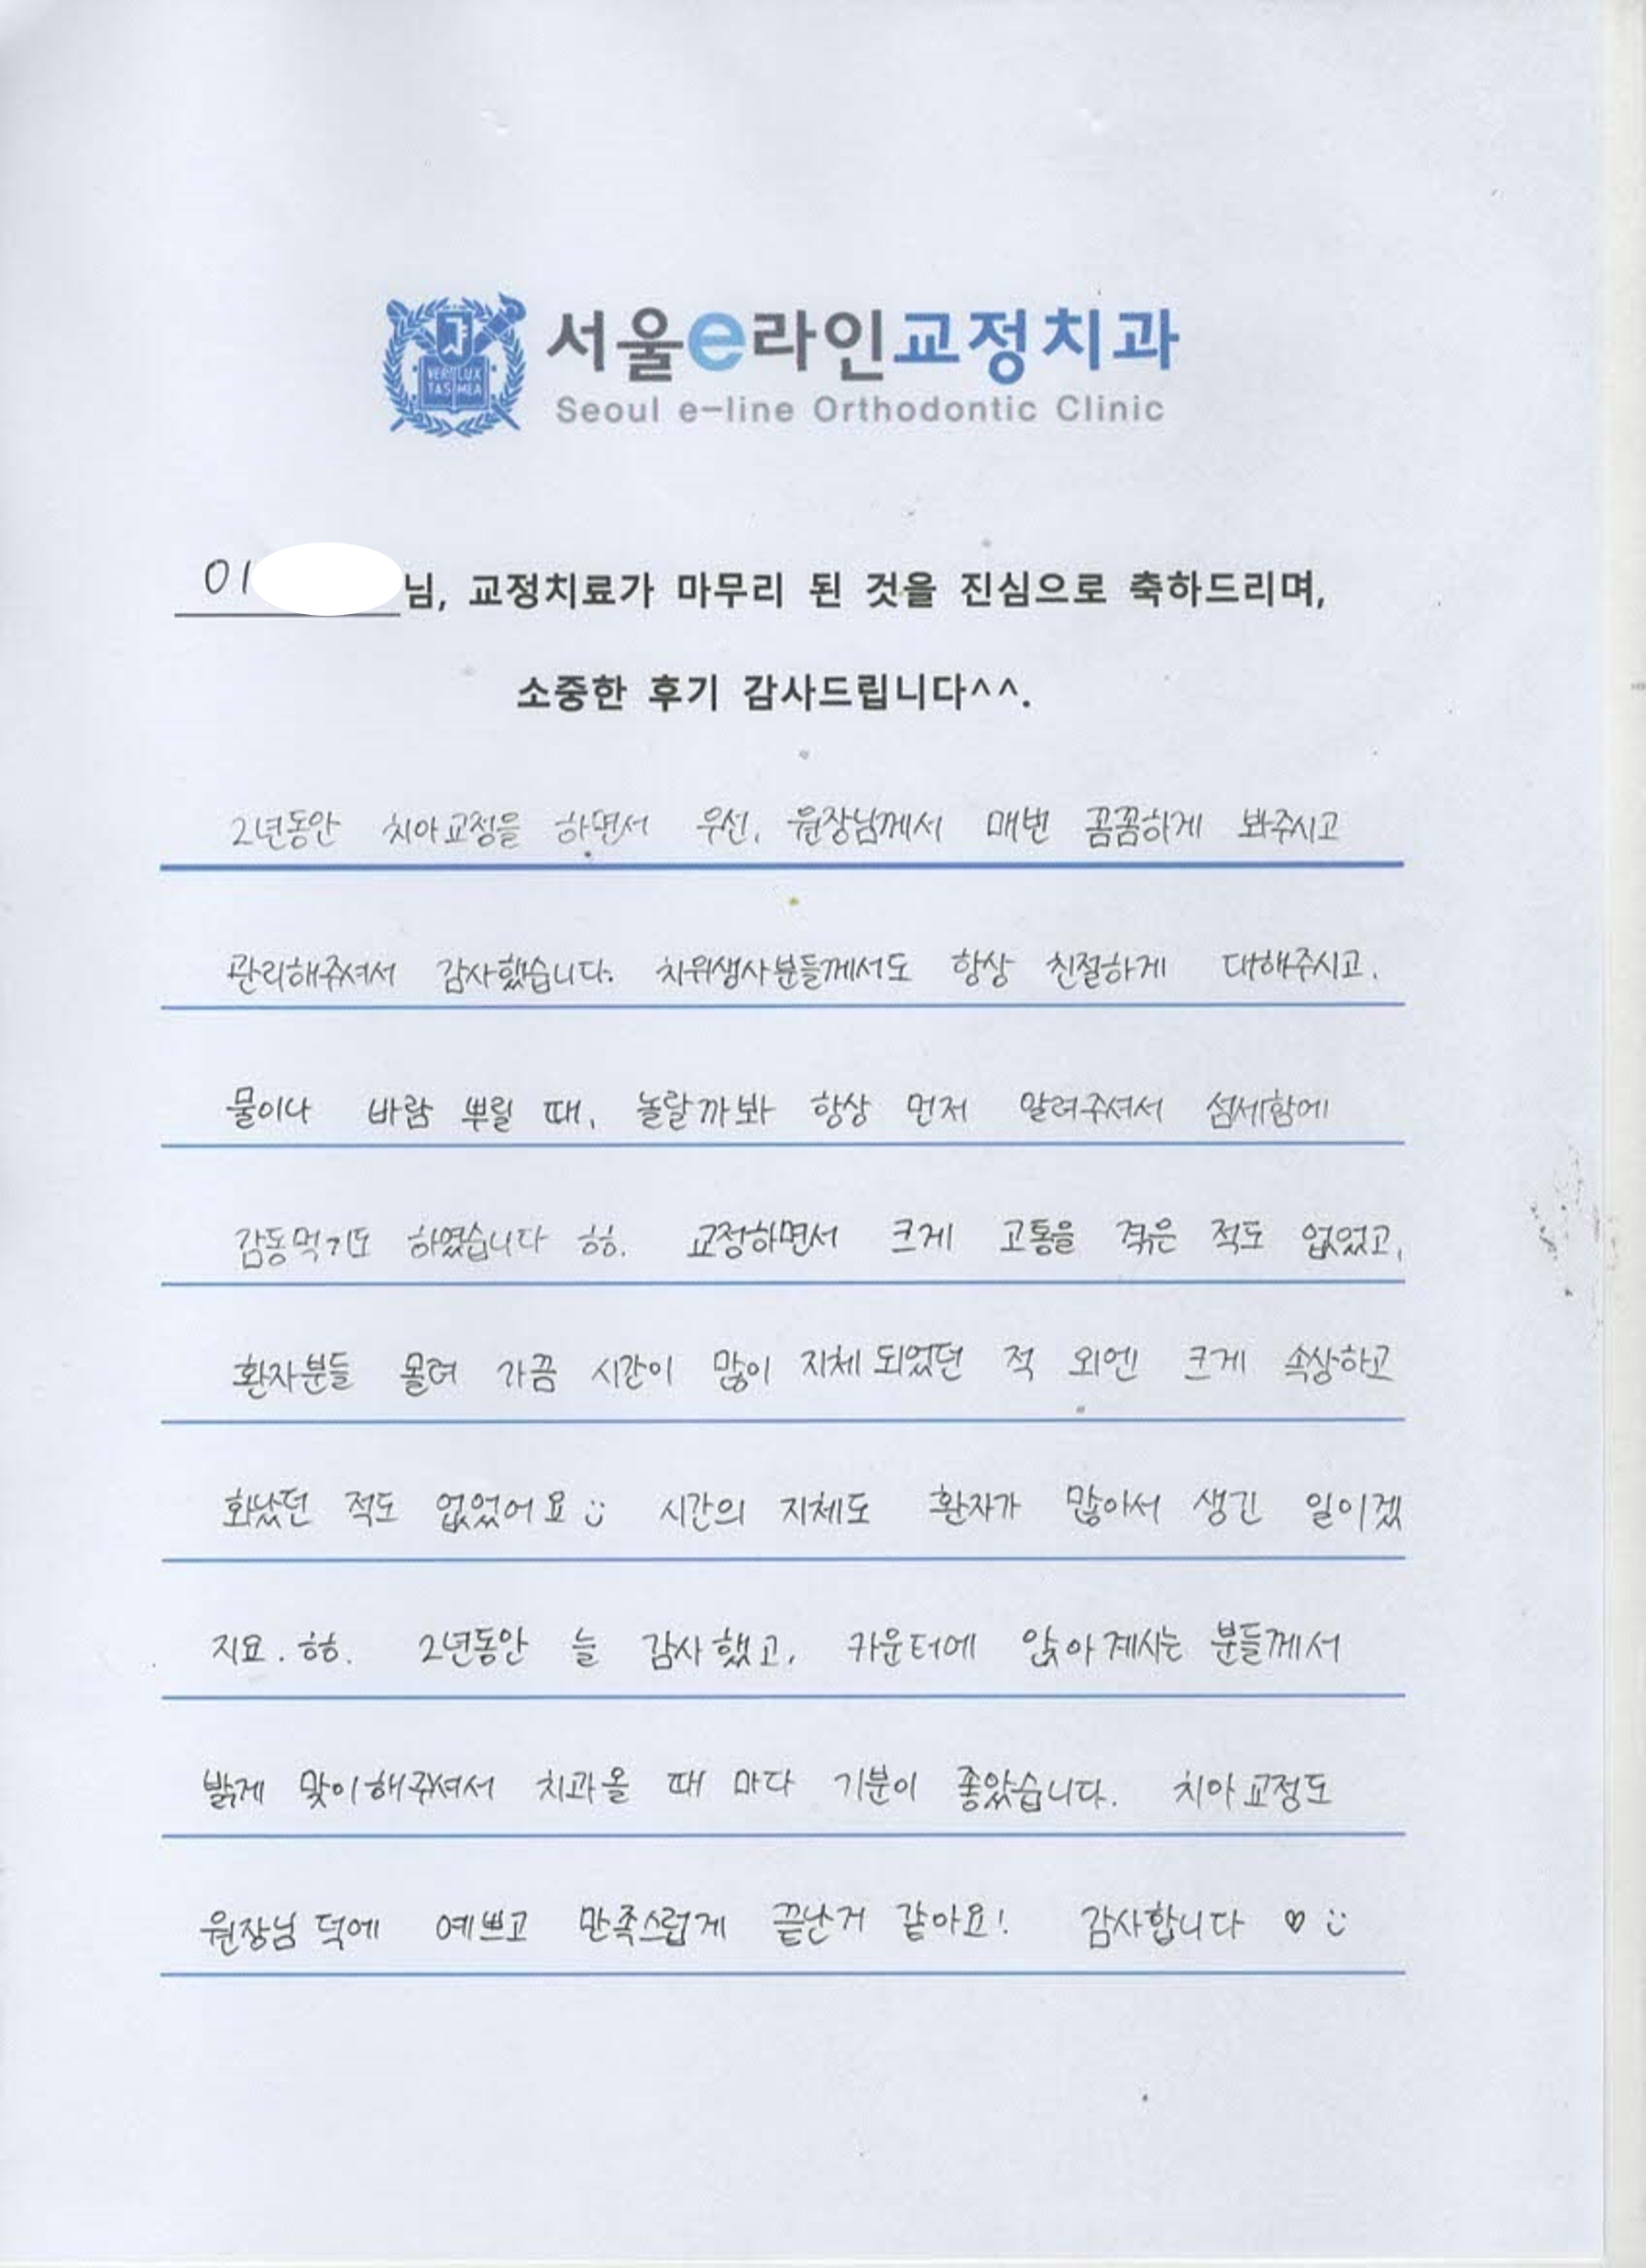 서울e라인교정치과
VERI LUX
TAS MEA
Seoul e-line Orthodontic Clinic
이 님, 교정치료가 마무리 된 것을 진심으로 축하드리며,
소중한 후기 감사드립니다^^.
2년동안 치아교정을 하면서 우선, 원장님께서 매번 꼼꼼하게 봐주시고
관리해주셔서 감사했습니다. 치위생사분들께서도 항상 친절하게 대해주시고,
물이나 바람 뿌릴 때, 놀랄까봐 항상 먼저 알려주셔서 섬세함에
감동먹기도 하였습니다 ㅎㅎ. 교정하면서 크게 고통을 겪은 적도 없었고,
환자분들 몰려 가끔 시간이 많이 지체 되었던 적 외엔 크게 속상하고
화났던 적도 없었어요 :) 시간의 지체도 환자가 많아서 생긴 일이겠
지요. ㅎㅎ. 2년동안 늘 감사했고, 카운터에 앉아계시는 분들께서
밝게 맞이해주셔서 치과올 때 마다 기분이 좋았습니다. 치아교정도
원장님 덕에 예쁘고 만족스럽게 끝난거 같아요! 감사합니다 ♡ :)